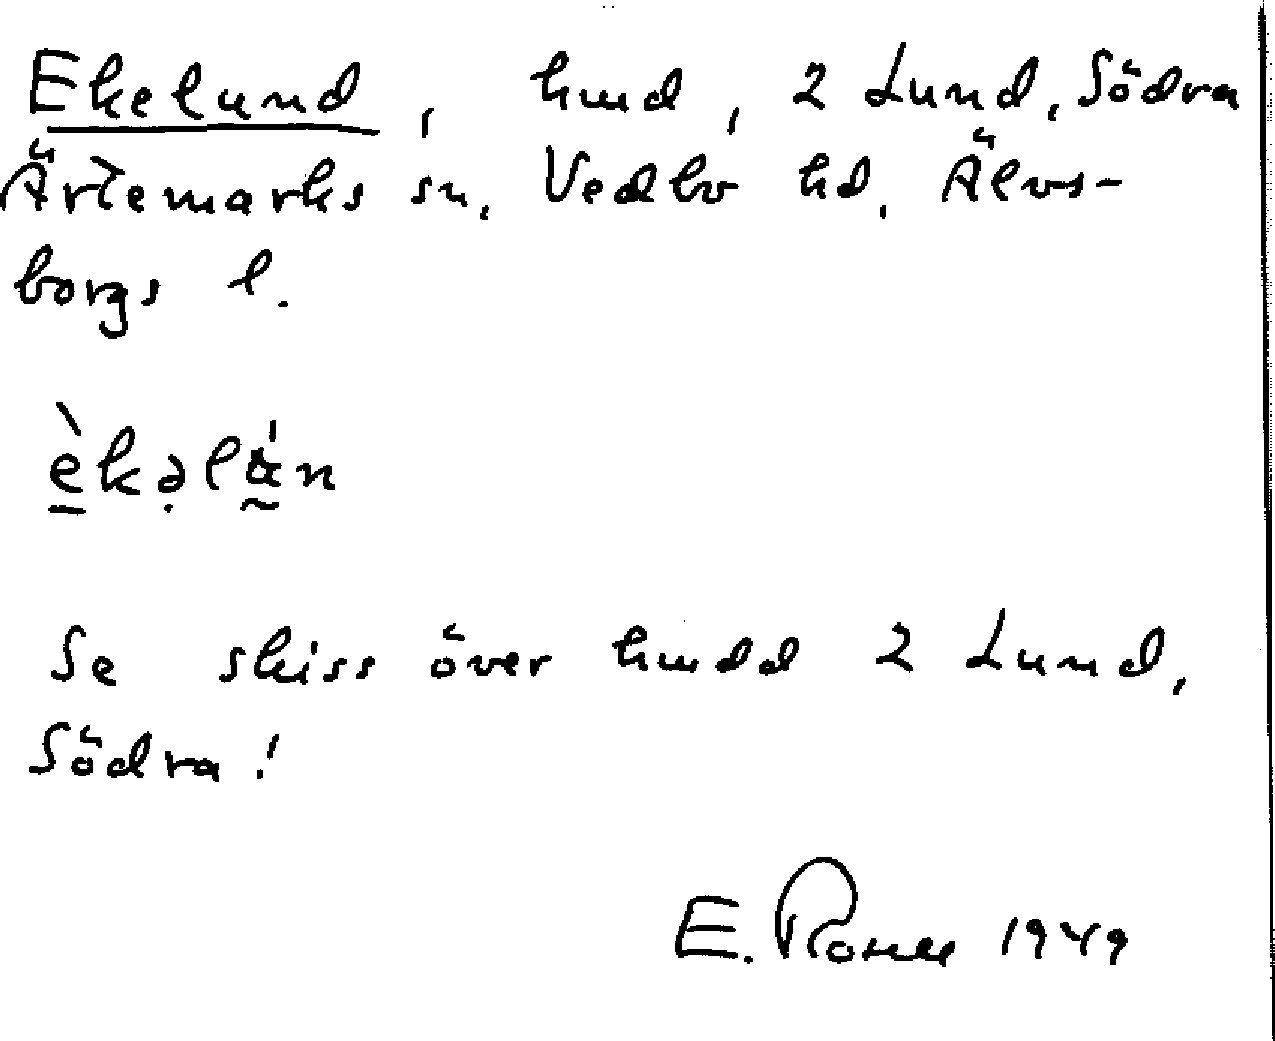 Ekelund, hmd, 2 Lund, Södra
Ärtemarks sn, Vedbo hd, Älvs-
borgs l.
èkəlán
Se skiss över hmdd 2 Lund,
Södra!
E. 1949